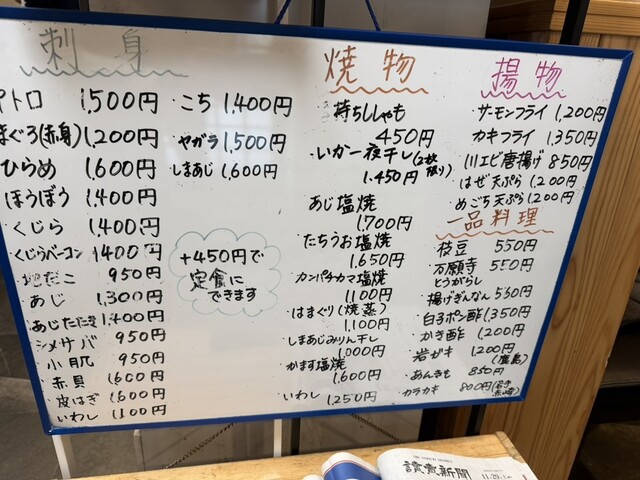 刺身
中トロ 1,500円
まぐろ(赤身) 1,200円
ひらめ 1,600円
ほうぼう 1,400円
くじら 1,400円
くじらベーコン 1400円
地だこ 950円
あじ 1,300円
あじたたき 1,400円
シメサバ 950円
小肌 950円
赤貝 1,600円
皮はぎ 1,600円
いわし 1,100円
・こち 1,400円
・ヤガラ 1,500円
しまあじ 1,600円
+450円で
定食に
できます
焼物
子持ちししゃも
450円
・いか一夜干し(2枚限り)
1,450円
あじ塩焼
1,700円
・たちうお塩焼
1,650円
カンパチカマ塩焼
1,100円
はまぐり(焼 蒸)
1,100円
しまあじみりん干し
1,000円
かます塩焼
1,600円
いわし 1,250円
揚物
サーモンフライ 1,200円
カキフライ 1,350円
川エビ唐揚げ 850円
はぜ天ぷら 1,200円
めごち天ぷら 1,200円
一品料理
枝豆 550円
万願寺とうがらし 550円
揚げぎんなん 550円
白子ポン酢 1,350円
かき酢 1,200円
岩ガキ 1,200円
あんきも 850円
カラカキ 800円
讀賣新聞